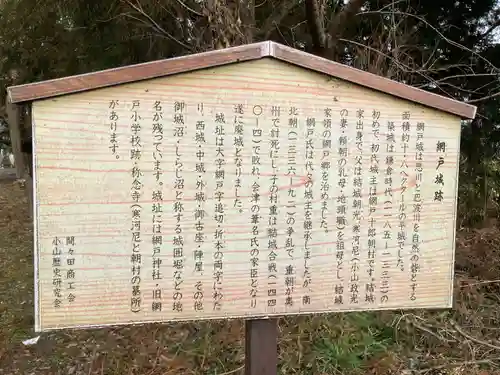 網戸城跡
網戸城は思川と巴波川を自然の砦とする
面積約十八ヘクタールの平城でした。
築城は鎌倉時代（一一八五—一三三三）の
初めで、初代城主は網戸十郎朝村です。結城
家出身で、父は結城朝光、寒河尼（小山政光
の妻・頼朝の乳母・地頭職）を祖母とし、結城
家領の網戸郷を治めました。
網戸氏は代々の城主を継承しましたが、南
北朝（一三三六—九二）の争乱で、重朝が奥
州で討死にし、子の村重は結城合戦（一四四
〇—四一）で敗れ、会津の葦名氏の家臣となり
遂に廃城となりました。
城址は大字網戸字追切・折本の両字にわた
り、西城、中城、外城、御古座、陣屋、その他
御城沼・しらじ沼と称する城囲堀などの地
名が残っています。城址には網戸神社・旧網
戸小学校跡・称念寺（寒河尼と朝村の墓所）
があります。
間々田商工会
小山歴史研究会